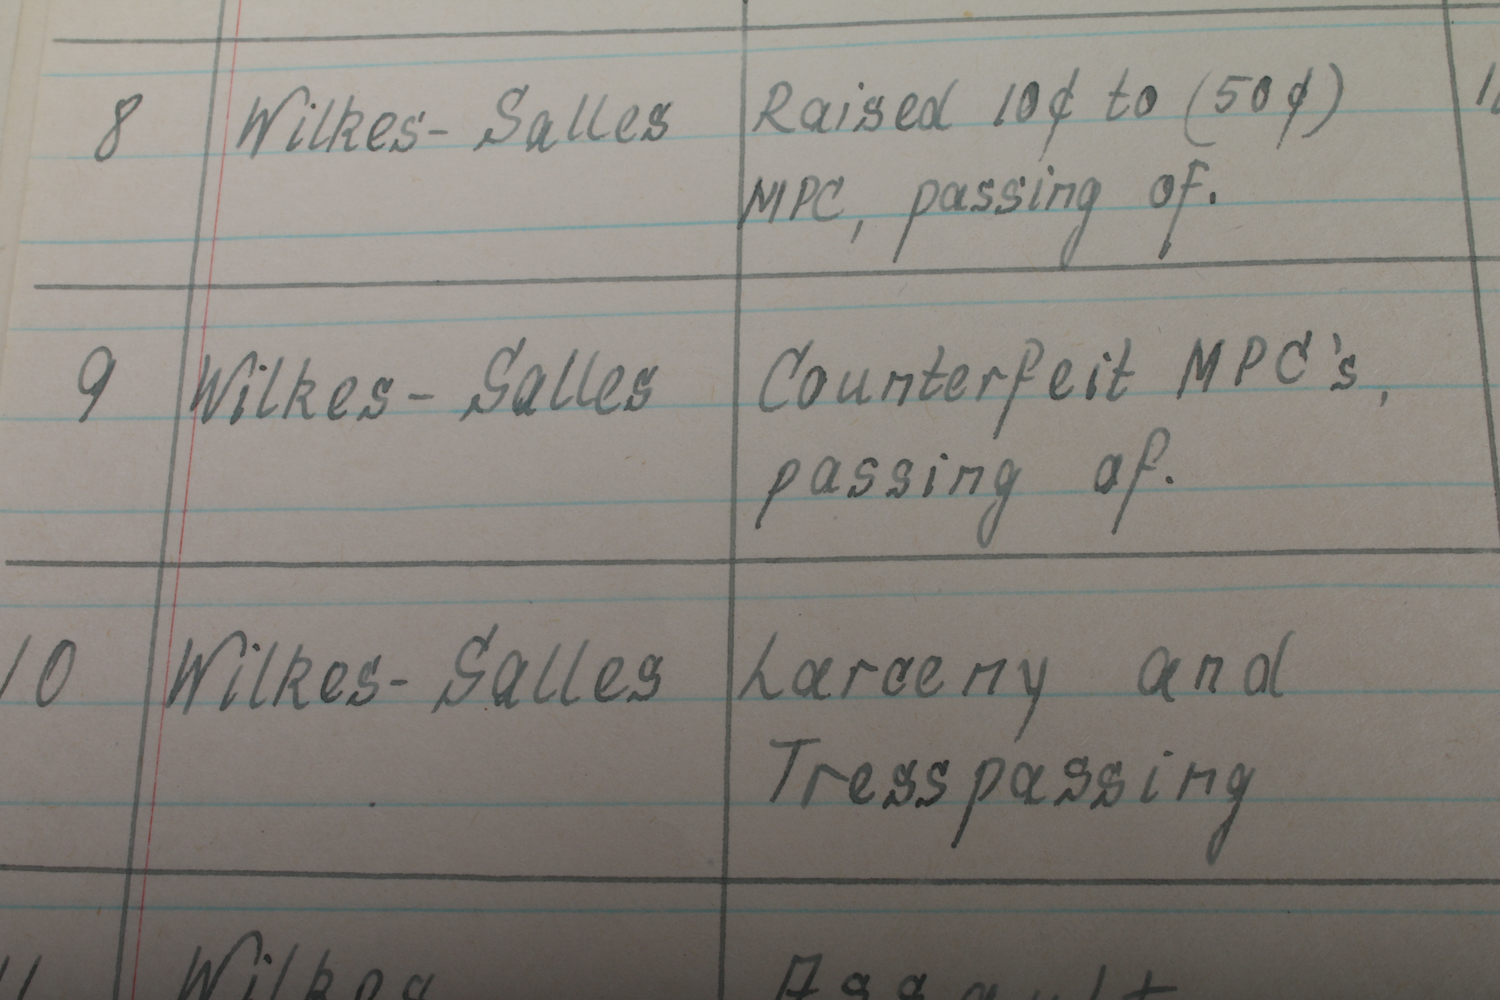 8 Wilkes-Salles Raised 10¢ to (50¢)
MPC, passing of.
9 Wilkes-Salles Counterfeit MPC's,
passing of.
10 Wilkes-Salles Larceny and
Tresspassing
11 Wilkes Assault